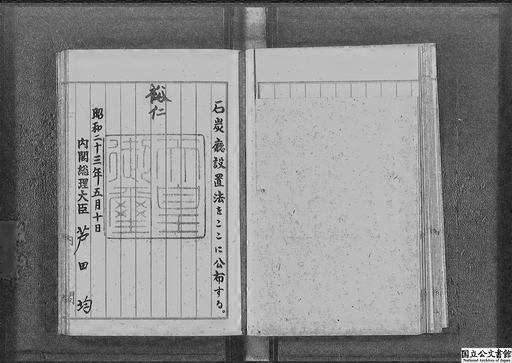 石炭廳設置法をここに公布する。
裕仁
天皇御璽
昭和二十三年五月十日
内閣総理大臣 芦田均
国立公文書館
National Archives of Japan